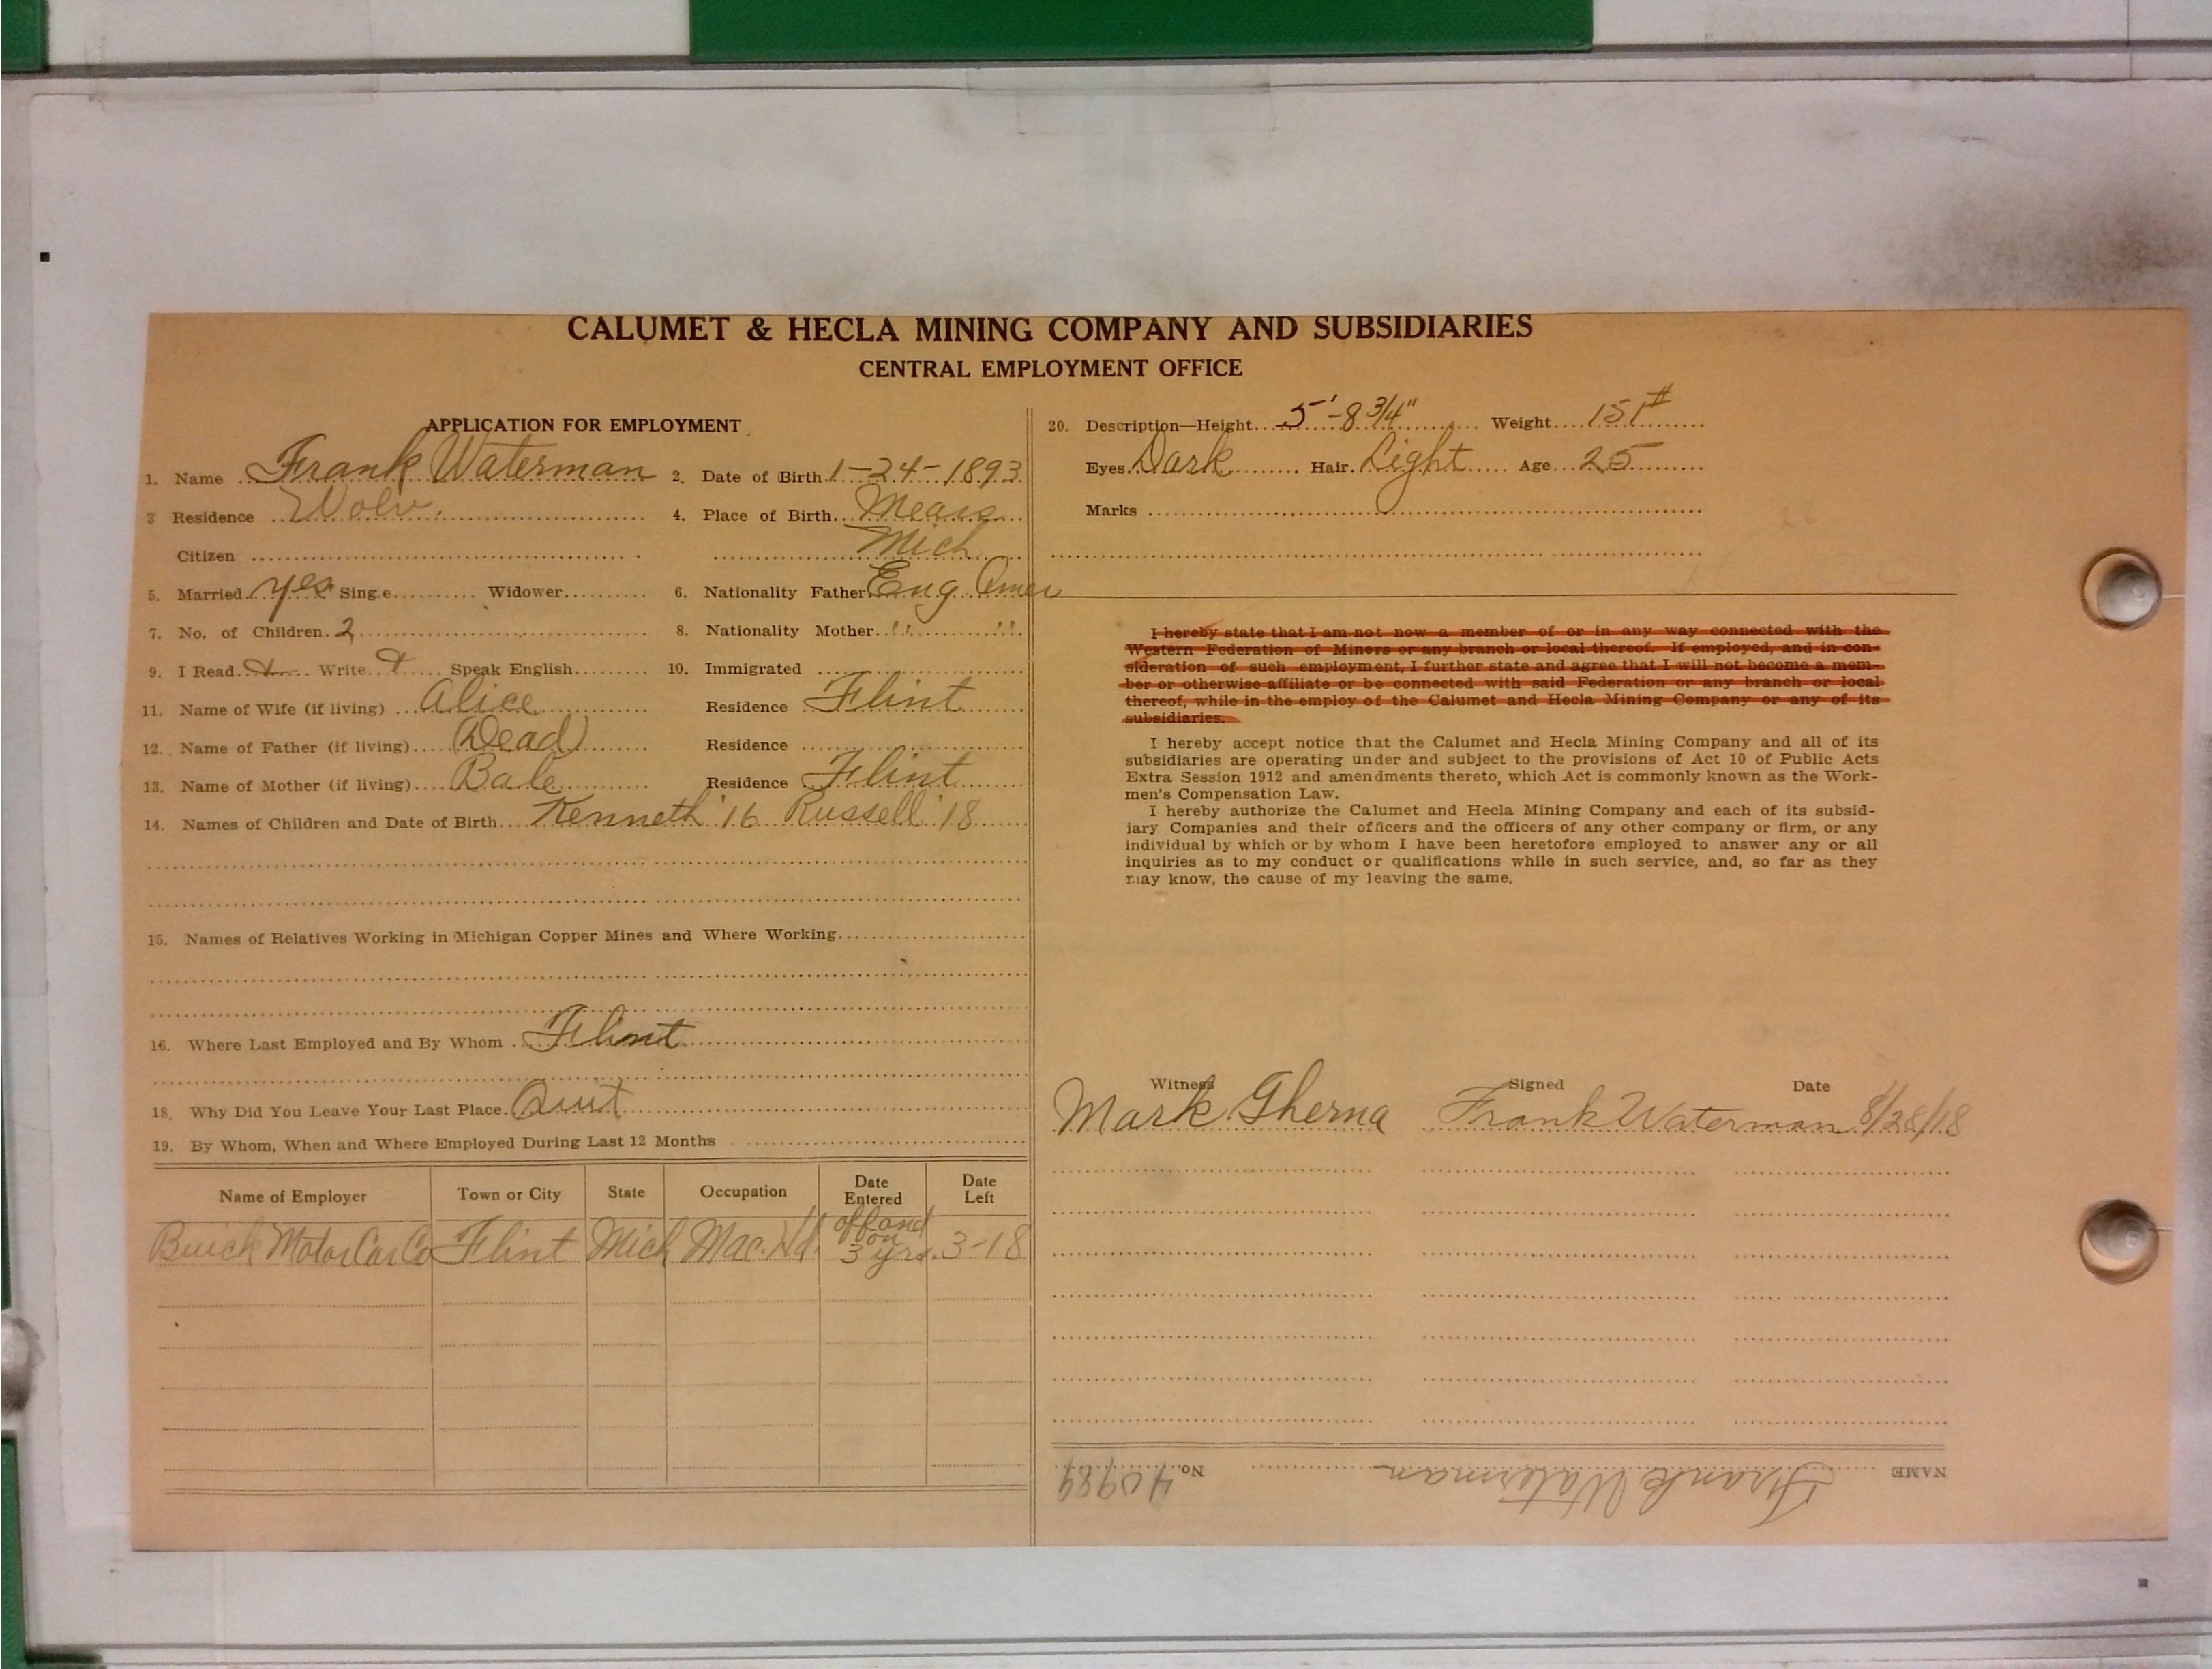 CALUMET & HECLA MINING COMPANY AND SUBSIDIARIES
CENTRAL EMPLOYMENT OFFICE
APPLICATION FOR EMPLOYMENT
1. Name Frank Waterman 2. Date of Birth 1-24-1893
3 Residence Wolv. 4. Place of Birth Mears
Citizen Mich
5. Married yes Sing.e Widower 6. Nationality Father Eng Amer
7. No. of Children 2 8. Nationality Mother " "
9. I Read + Write + Speak English 10. Immigrated
11. Name of Wife (if living) Alice Residence Flint
12. Name of Father (if living) (Dead) Residence
13. Name of Mother (if living) Bale Residence Flint
14. Names of Children and Date of Birth Kenneth '16 Russell '18
15. Names of Relatives Working in Michigan Copper Mines and Where Working
16. Where Last Employed and By Whom Flint
18. Why Did You Leave Your Last Place. Quit
19. By Whom, When and Where Employed During Last 12 Months
Name of Employer Town or City State Occupation Date Entered Date Left
Buick Motor Car Co Flint Mich Mac. Hd. off and on 3 yrs. 3-18
20. Description—Height 5'-8 3/4" Weight 151#
Eyes Dark Hair Light Age 25
Marks
I hereby state that I am not now a member of or in any way connected with the
Western Federation of Miners or any branch or local thereof. If employed, and in con-
sideration of such employment, I further state and agree that I will not become a mem-
ber or otherwise affiliate or be connected with said Federation or any branch or local
thereof, while in the employ of the Calumet and Hecla Mining Company or any of its
subsidiaries.
I hereby accept notice that the Calumet and Hecla Mining Company and all of its
subsidiaries are operating under and subject to the provisions of Act 10 of Public Acts
Extra Session 1912 and amendments thereto, which Act is commonly known as the Work-
men's Compensation Law.
I hereby authorize the Calumet and Hecla Mining Company and each of its subsid-
iary Companies and their officers and the officers of any other company or firm, or any
individual by which or by whom I have been heretofore employed to answer any or all
inquiries as to my conduct or qualifications while in such service, and, so far as they
may know, the cause of my leaving the same.
Witness Signed Date
Mark Gherna Frank Waterman 8/28/18
NAME Frank Waterman No. 40989